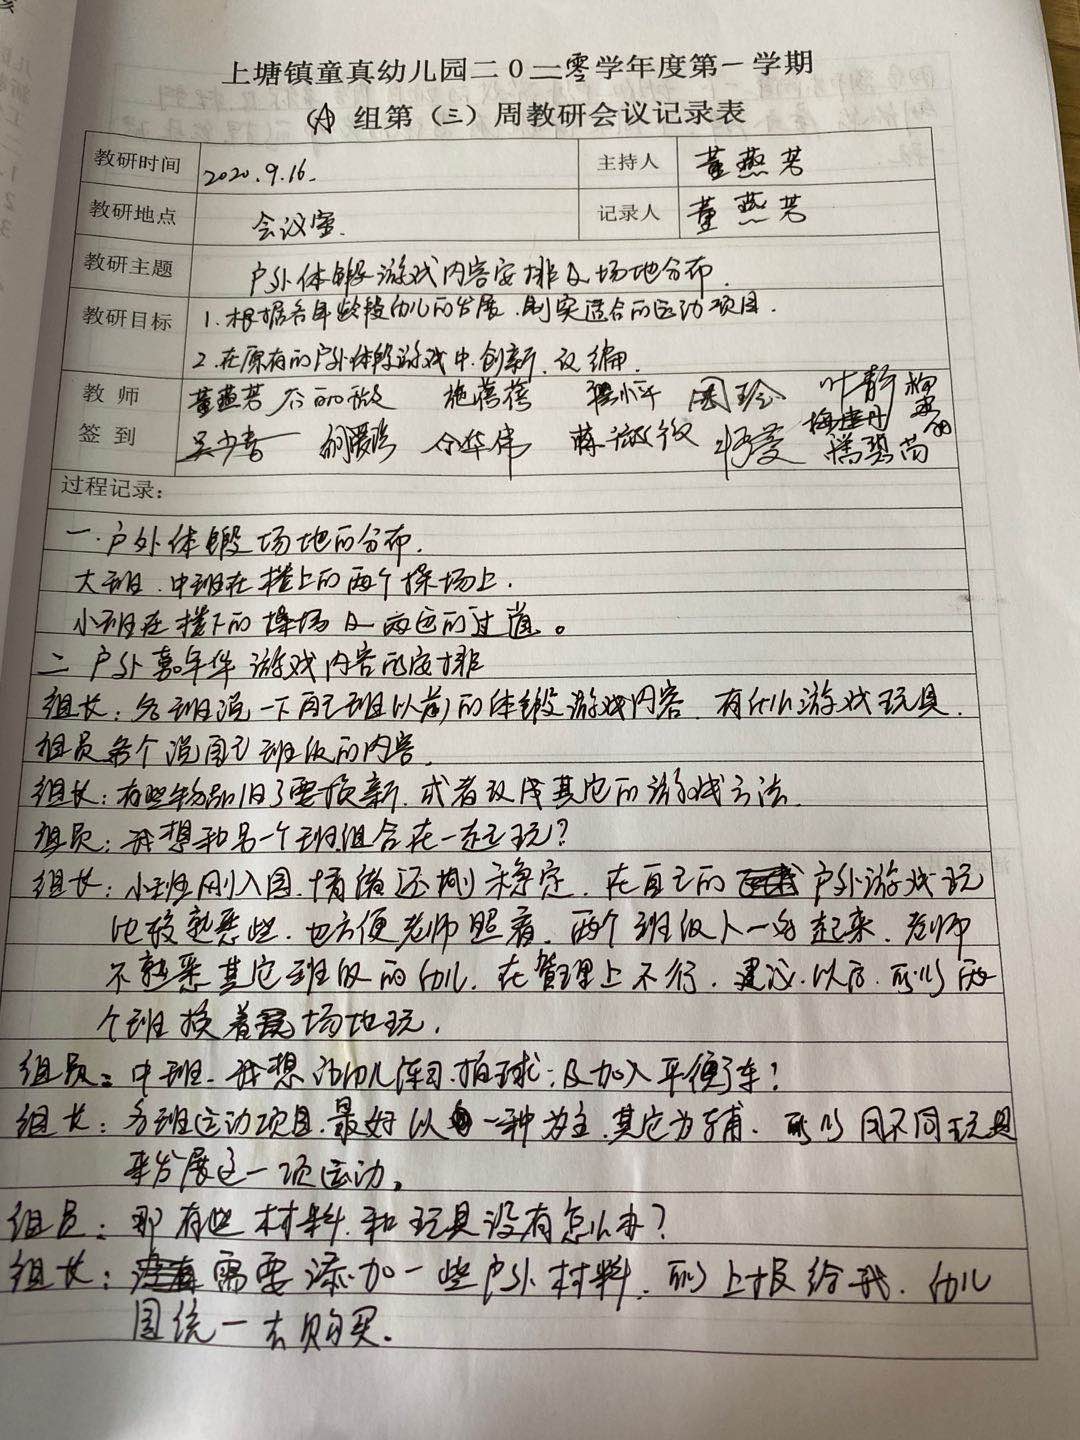 上塘镇童真幼儿园二0二零学年度第一学期
(A) 组第（三）周教研会议记录表
教研时间 2020.9.16. 主持人 董燕芳
教研地点 会议室. 记录人 董燕芳
教研主题 户外体锻游戏内容安排及场地分布.
教研目标 1.根据各年龄段幼儿的发展.制定适合的运动项目.
2.在原有的户外体锻游戏中.创新.改编.
教师 董燕芳 施蓓蓓 周玲 叶静
签到
过程记录：
一.户外体锻场地的分布.
大班.中班在楼上的两个操场上.
小班在楼下的操场及两边的过道。
二 户外嘉年华游戏内容的安排
组长：各班说一下自己班以前的体锻游戏内容.有什么游戏玩具.
组员各个说自己班级的内容.
组长：有些物品旧了要换新.或者改成其它的游戏方法.
组员：我想和另一个班组合在一起玩？
组长：小班刚入园.情绪还刚稳定.在自己的户外游戏玩
比较熟悉些.也方便老师照看.两个班级人一多起来.老师
不熟悉其它班级的幼儿.在管理上不行.建议.以后.可以两
个班换着场地玩.
组员：中班.我想 幼儿练习.拍球；及加入平衡车！
组长：各班运动项目.最好以一种为主.其它为辅.可以用不同玩具
来发展这一项运动。
组员：那有些材料.和玩具没有怎么办？
组长：需要添加一些户外材料.可以上报给我.幼儿
园统一去购买.